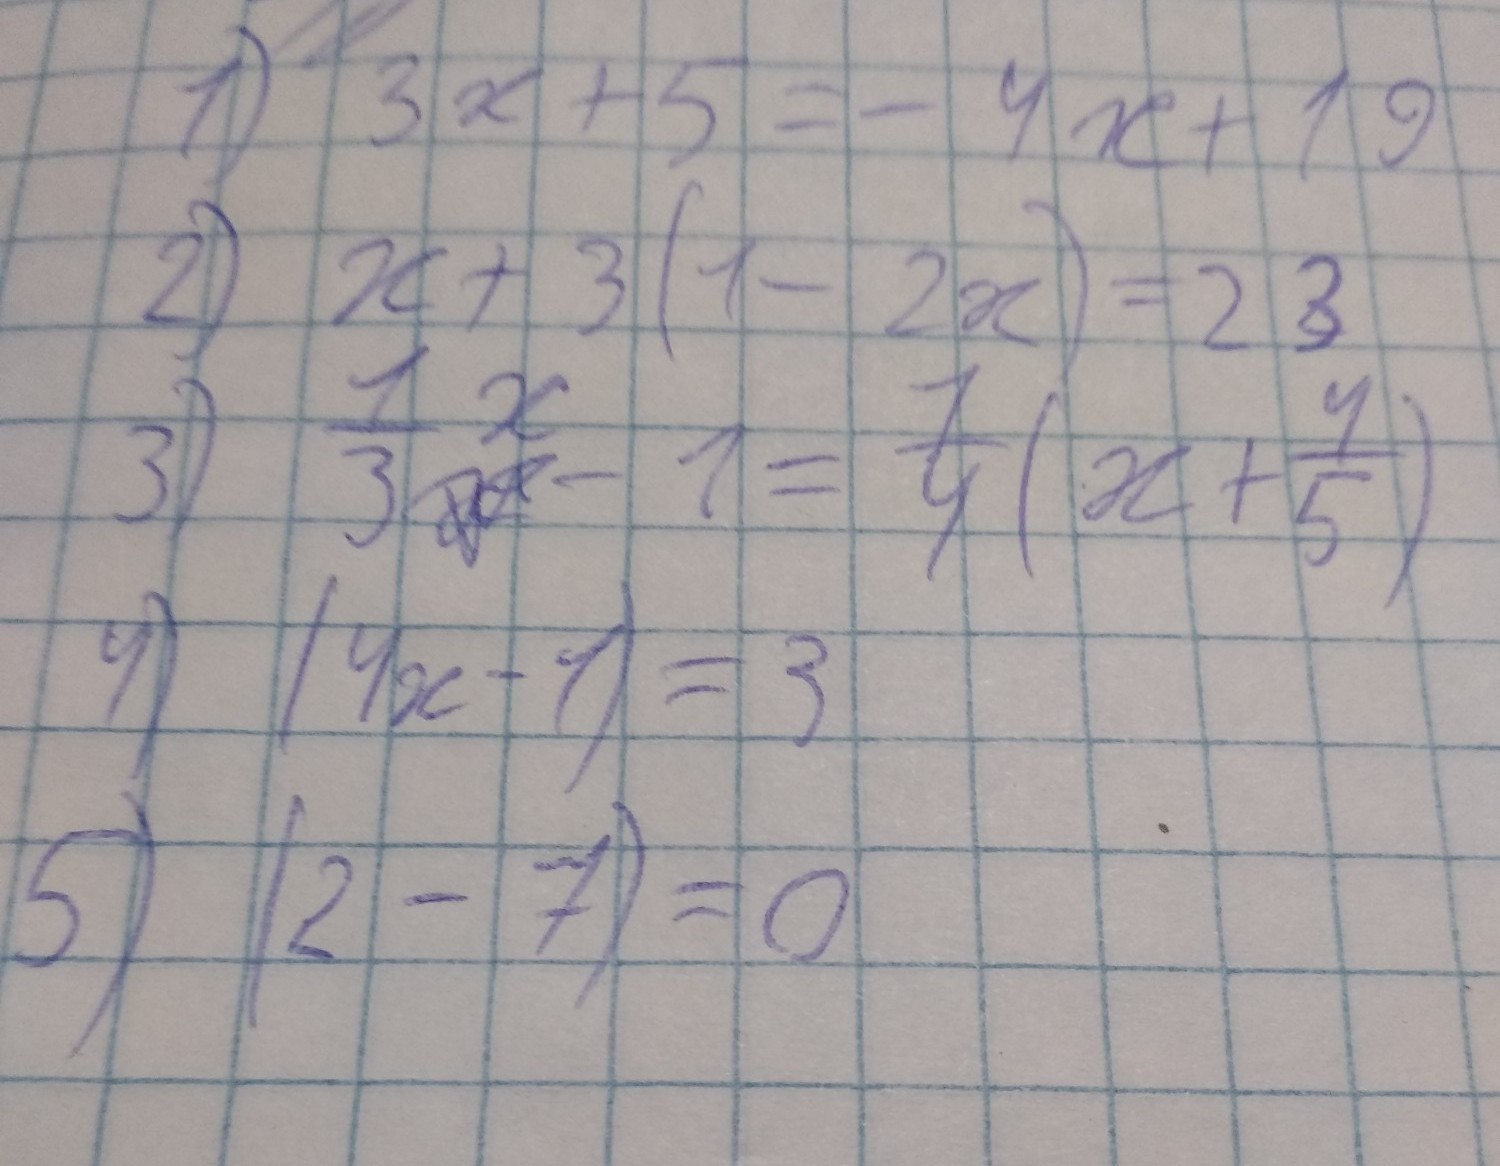 1) 3x + 5 = - 4x + 19
2) x + 3(1 - 2x) = 23
3) 1/3 x - 1 = 1/4 (x + 4/5)
4) |4x - 1| = 3
5) |2 - 7| = 0